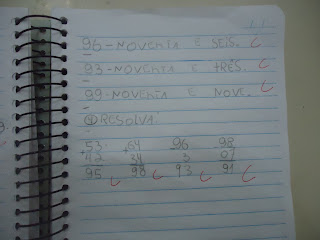 96-NOVENTA E SEIS. C
93-NOVENTA E TRÊS. C
99-NOVENTA E NOVE. C
RESOLVA:
+53 +64 96 98
42 34 3 07
95 98 93 91
C C C C